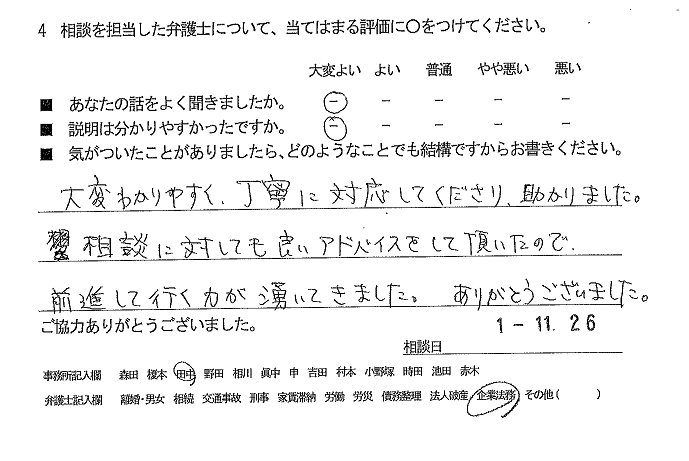 4 相談を担当した弁護士について、当てはまる評価に〇をつけてください。
大変よい よい 普通 やや悪い 悪い
■ あなたの話をよく聞きましたか。 － － － － －
■ 説明は分かりやすかったですか。 － － － － －
■ 気がついたことがありましたら、どのようなことでも結構ですからお書きください。
大変わかりやすく、丁寧に対応してくださり、助かりました。
相談に対しても良いアドバイスをして頂いたので、
前進して行く力が湧いてきました。 ありがとうございました。
ご協力ありがとうございました。
1-11.26
相談日
事務所記入欄 森田 榎本 田中 野田 相川 眞中 申 吉田 村本 小野塚 時田 池田 赤木
弁護士記入欄 離婚・男女 相続 交通事故 刑事 家賃滞納 労働 労災 債務整理 法人破産 企業法務 その他( )